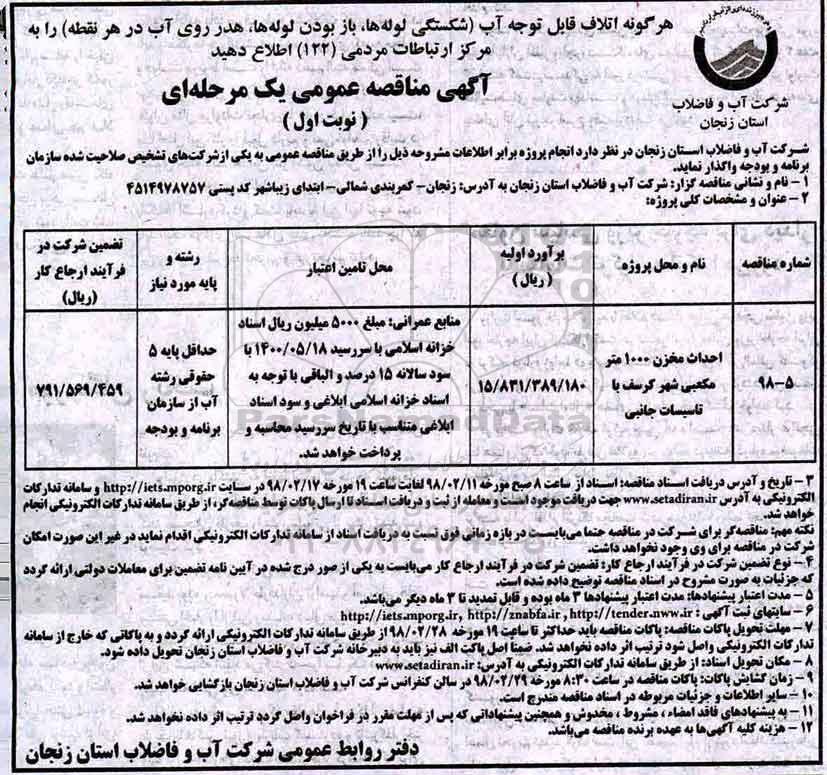 هرگونه اتلاف قابل توجه آب (شکستگی لوله‌ها، باز بودن لوله‌ها، هدر روی آب در هر نقطه) را به
مرکز ارتباطات مردمی (۱۲۲) اطلاع دهید
آگهی مناقصه عمومی یک مرحله‌ای
( نوبت اول )
شرکت آب و فاضلاب
استان زنجان
شرکت آب و فاضلاب استان زنجان در نظر دارد انجام پروژه برابر اطلاعات مشروحه ذیل را از طریق مناقصه عمومی به یکی ازشرکت‌های تشخیص صلاحیت شده سازمان
برنامه و بودجه واگذار نماید.
۱ – نام و نشانی مناقصه گزار: شرکت آب و فاضلاب استان زنجان به آدرس: زنجان- کمربندی شمالی- ابتدای زیباشهر کد پستی ۴۵۱۴۹۷۸۷۵۷
۲ – عنوان و مشخصات کلی پروژه:
شماره مناقصه
نام و محل پروژه
برآورد اولیه
( ریال )
محل تامین اعتبار
رشته و
پایه مورد نیاز
تضمین شرکت در
فرآیند ارجاع کار
(ریال)
۹۸-۵
احداث مخزن ۱۰۰۰ متر
مکعبی شهر کرسف با
تاسیسات جانبی
۱۵/۸۳۱/۳۸۹/۱۸۰
منابع عمرانی: مبلغ ۵۰۰۰ میلیون ریال اسناد
خزانه اسلامی با سررسید ۱۴۰۰/۰۵/۱۸ با
سود سالانه ۱۵ درصد و الباقی با توجه به
اسناد خزانه اسلامی ابلاغی و سود اسناد
ابلاغی متناسب با تاریخ سررسید محاسبه و
پرداخت خواهد شد.
حداقل پایه ۵
حقوقی رشته
آب از سازمان
برنامه و بودجه
۷۹۱/۵۶۹/۴۵۹
ParsNamadData
۳ – تاریخ و آدرس دریافت اسناد مناقصه: اسناد از ساعت ۸ صبح مورخه ۹۸/۰۲/۱۱ لغایت ساعت ۱۹ مورخه ۹۸/۰۲/۱۷ در سایت http://iets.mporg.ir و سامانه تدارکات
الکترونیکی به آدرس www.setadiran.ir جهت دریافت موجود است و معامله از ثبت و دریافت اسناد تا ارسال پاکات توسط مناقصه‌گر، از طریق سامانه تدارکات الکترونیکی انجام
خواهد شد.
نکته مهم: مناقصه‌گر برای شرکت در مناقصه حتما می‌بایست در بازه زمانی فوق نسبت به دریافت اسناد از سامانه تدارکات الکترونیکی اقدام نماید در غیر این صورت امکان
شرکت در مناقصه برای وی وجود نخواهد داشت.
۴ – نوع تضمین شرکت در فرآیند ارجاع کار: تضمین شرکت در فرآیند ارجاع کار می‌بایست به یکی از صور درج شده در آیین نامه تضمین برای معاملات دولتی ارائه گردد
که جزئیات به صورت مشروح در اسناد مناقصه توضیح داده شده است.
۵ – مدت اعتبار پیشنهادها: مدت اعتبار پیشنهادها ۳ ماه بوده و قابل تمدید تا ۳ ماه دیگر می‌باشد.
۶ – سایتهای ثبت آگهی : http://iets.mporg.ir, http://znabfa.ir , http://tender.nww.ir
۷ – مهلت تحویل پاکات مناقصه: پاکات مناقصه باید حداکثر تا ساعت ۱۹ مورخه ۹۸/۰۲/۲۸ از طریق سامانه تدارکات الکترونیکی ارائه گردد و به پاکاتی که خارج از سامانه
تدارکات الکترونیکی واصل شود ترتیب اثر داده نخواهد شد. ضمناً اصل پاکت الف نیز باید به دبیرخانه شرکت آب و فاضلاب استان زنجان تحویل داده شود.
۸ – مکان تحویل اسناد: از طریق سامانه تدارکات الکترونیکی به آدرس: www.setadiran.ir
۹ – زمان گشایش پاکات: پاکات مناقصه در ساعت ۸:۳۰ مورخه ۹۸/۰۲/۲۹ در سالن کنفرانس شرکت آب و فاضلاب استان زنجان بازگشایی خواهد شد.
۱۰ – سایر اطلاعات و جزئیات مربوطه در اسناد مناقصه مندرج است.
۱۱ – به پیشنهادهای فاقد امضاء ، مشروط ، مخدوش و همچنین پیشنهاداتی که پس از مهلت مقرر در فراخوان واصل گردد ترتیب اثر داده نخواهد شد.
۱۲ – هزینه کلیه آگهی‌ها به عهده برنده مناقصه می‌باشد.
دفتر روابط عمومی شرکت آب و فاضلاب استان زنجان